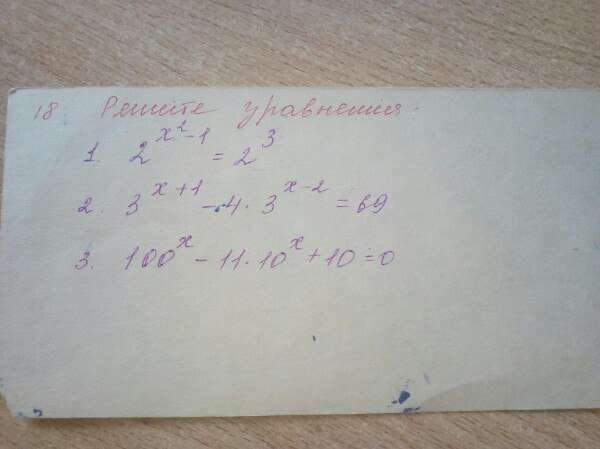 18 Решите уравнения.
1. 2^{x^2-1} = 2^3
2. 3^{x+1} - 4 · 3^{x-2} = 69
3. 100^x - 11 · 10^x + 10 = 0